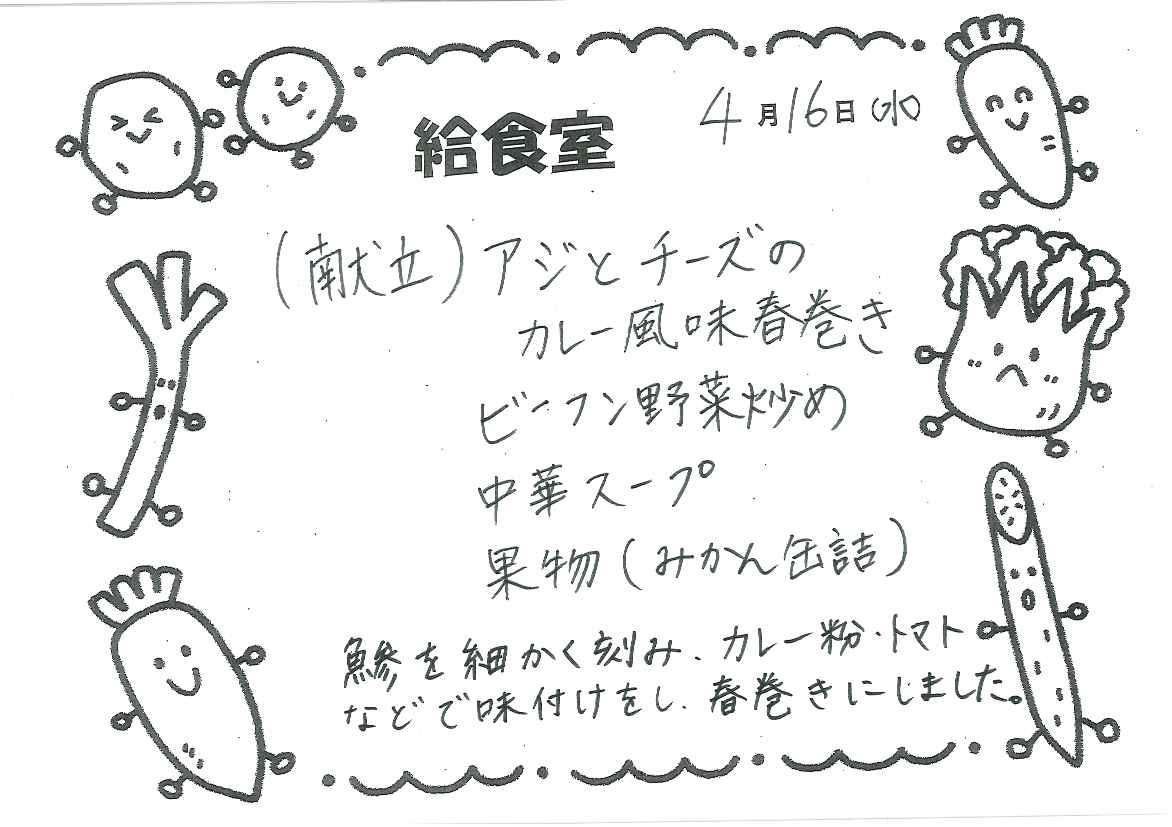 給食室
4月16日(水)
(献立)アジとチーズの
カレー風味春巻き
ビーフン野菜炒め
中華スープ
果物(みかん缶詰)
鯵を細かく刻み、カレー粉・トマト
などで味付けをし、春巻きにしました。